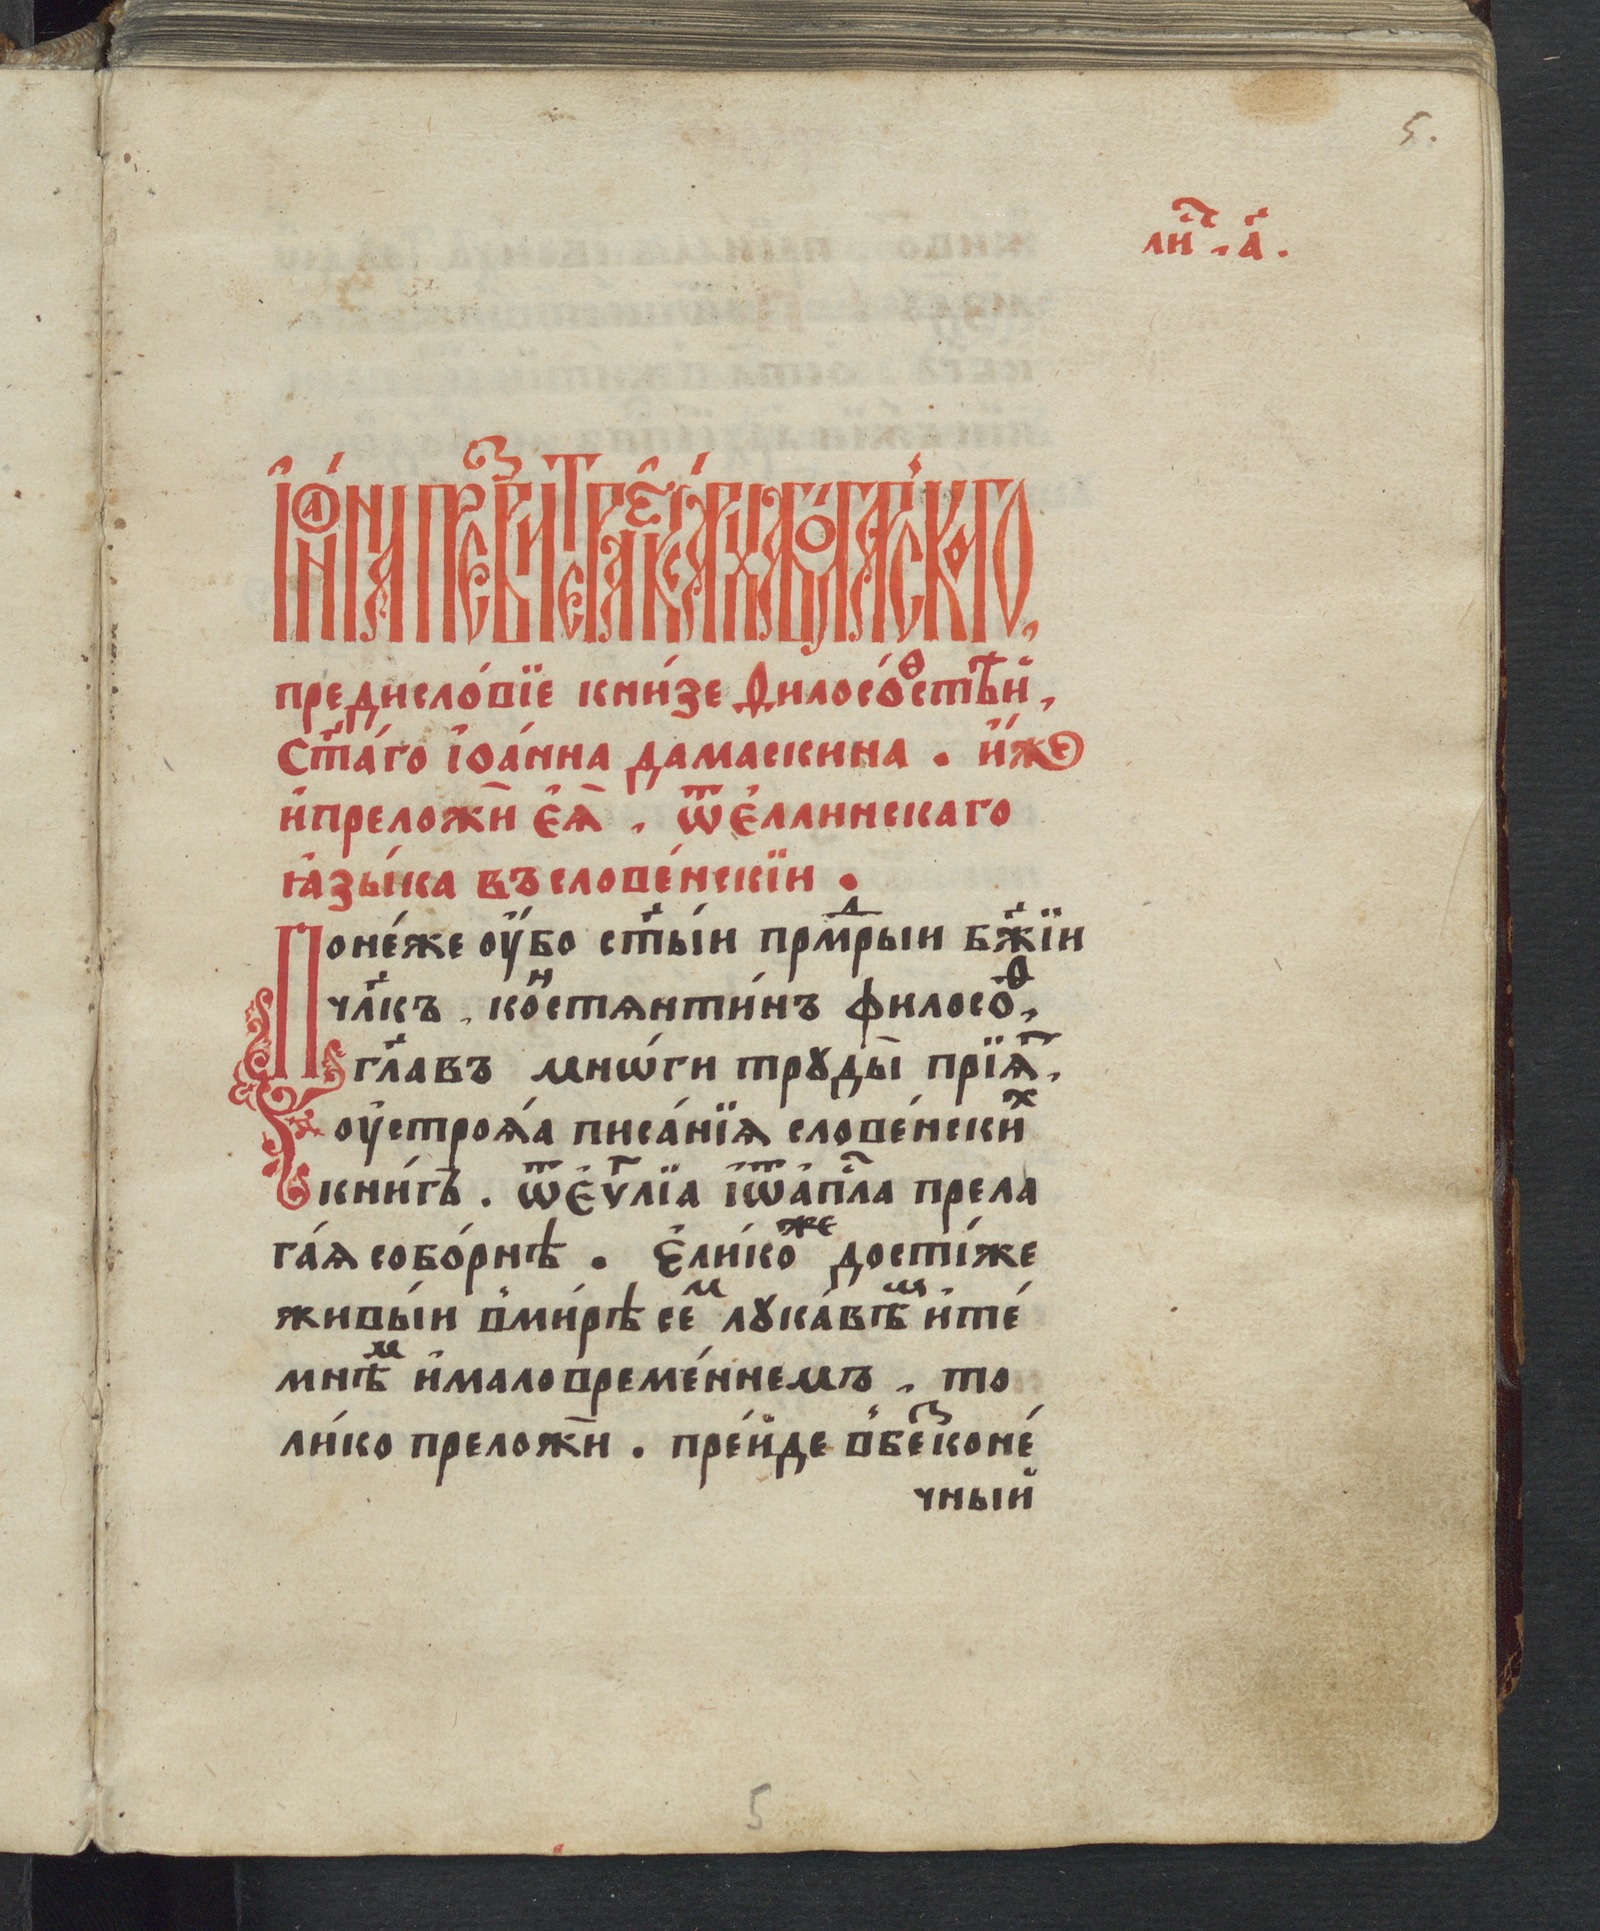 5.
ли́с҃ . а҃ .
і҆ѡа́нна презви́тера є҆ѯа́рха болга́рскаго,
предисло́вїе кни́зе филосо́ѳстѣ́й,
ст҃а́го і҆оа́нна дамаскина . и҆́же
и҆преложѝ є҆ѧ̀ , ѿє҆ллинскаго
ꙗ҆зы́ка въслове́нскїи .
Поне́же оу҆́бо ст҃ы́и прмⷣрыи бж҃їи
чл҃къ , коⷩ҇стѧнти́нъ филосо́ѳ,
гл҃авъ мнѡ́ги трꙋды̀ прїѧ̀ⷭ҇,
оу҆строѧ́а писа́нїѧ слове́нскиⷯ
кни́гъ . ѿє҆ѵⷢ҇лїа і҆ѿа҆пⷭ҇ла прела
га́ѧ собо́рнѣ . є҆ли́коⷤ дості́же
живы́и в҆ми́рѣ сеⷨ лꙋка́внѣⷨ и҆те́
мнѣⷨ и҆маловреме́ннемъ , то
ли́ко преложѝ . пре́йде в҆беⷥконе́
чный
5